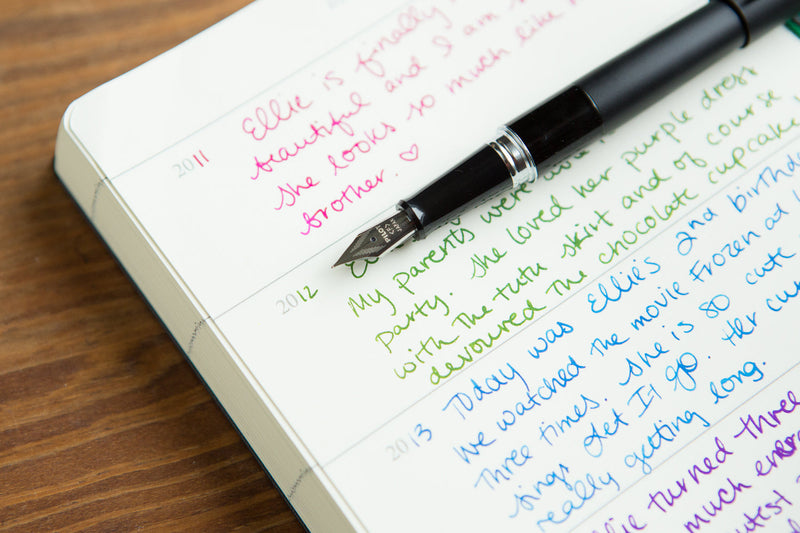 Ellie is finally
beautiful and I am
2011 she looks so much like
brother. ♡
PILOT
JAPAN
My parents were
2012 party. She loved her purple dress
with the tutu skirt and of course
devoured the chocolate cupcake
Today was Ellie's 2nd birthday
2013 we watched the movie Frozen at
three times. She is so cute
sings Let It Go. Her
really getting long.
turned three
much